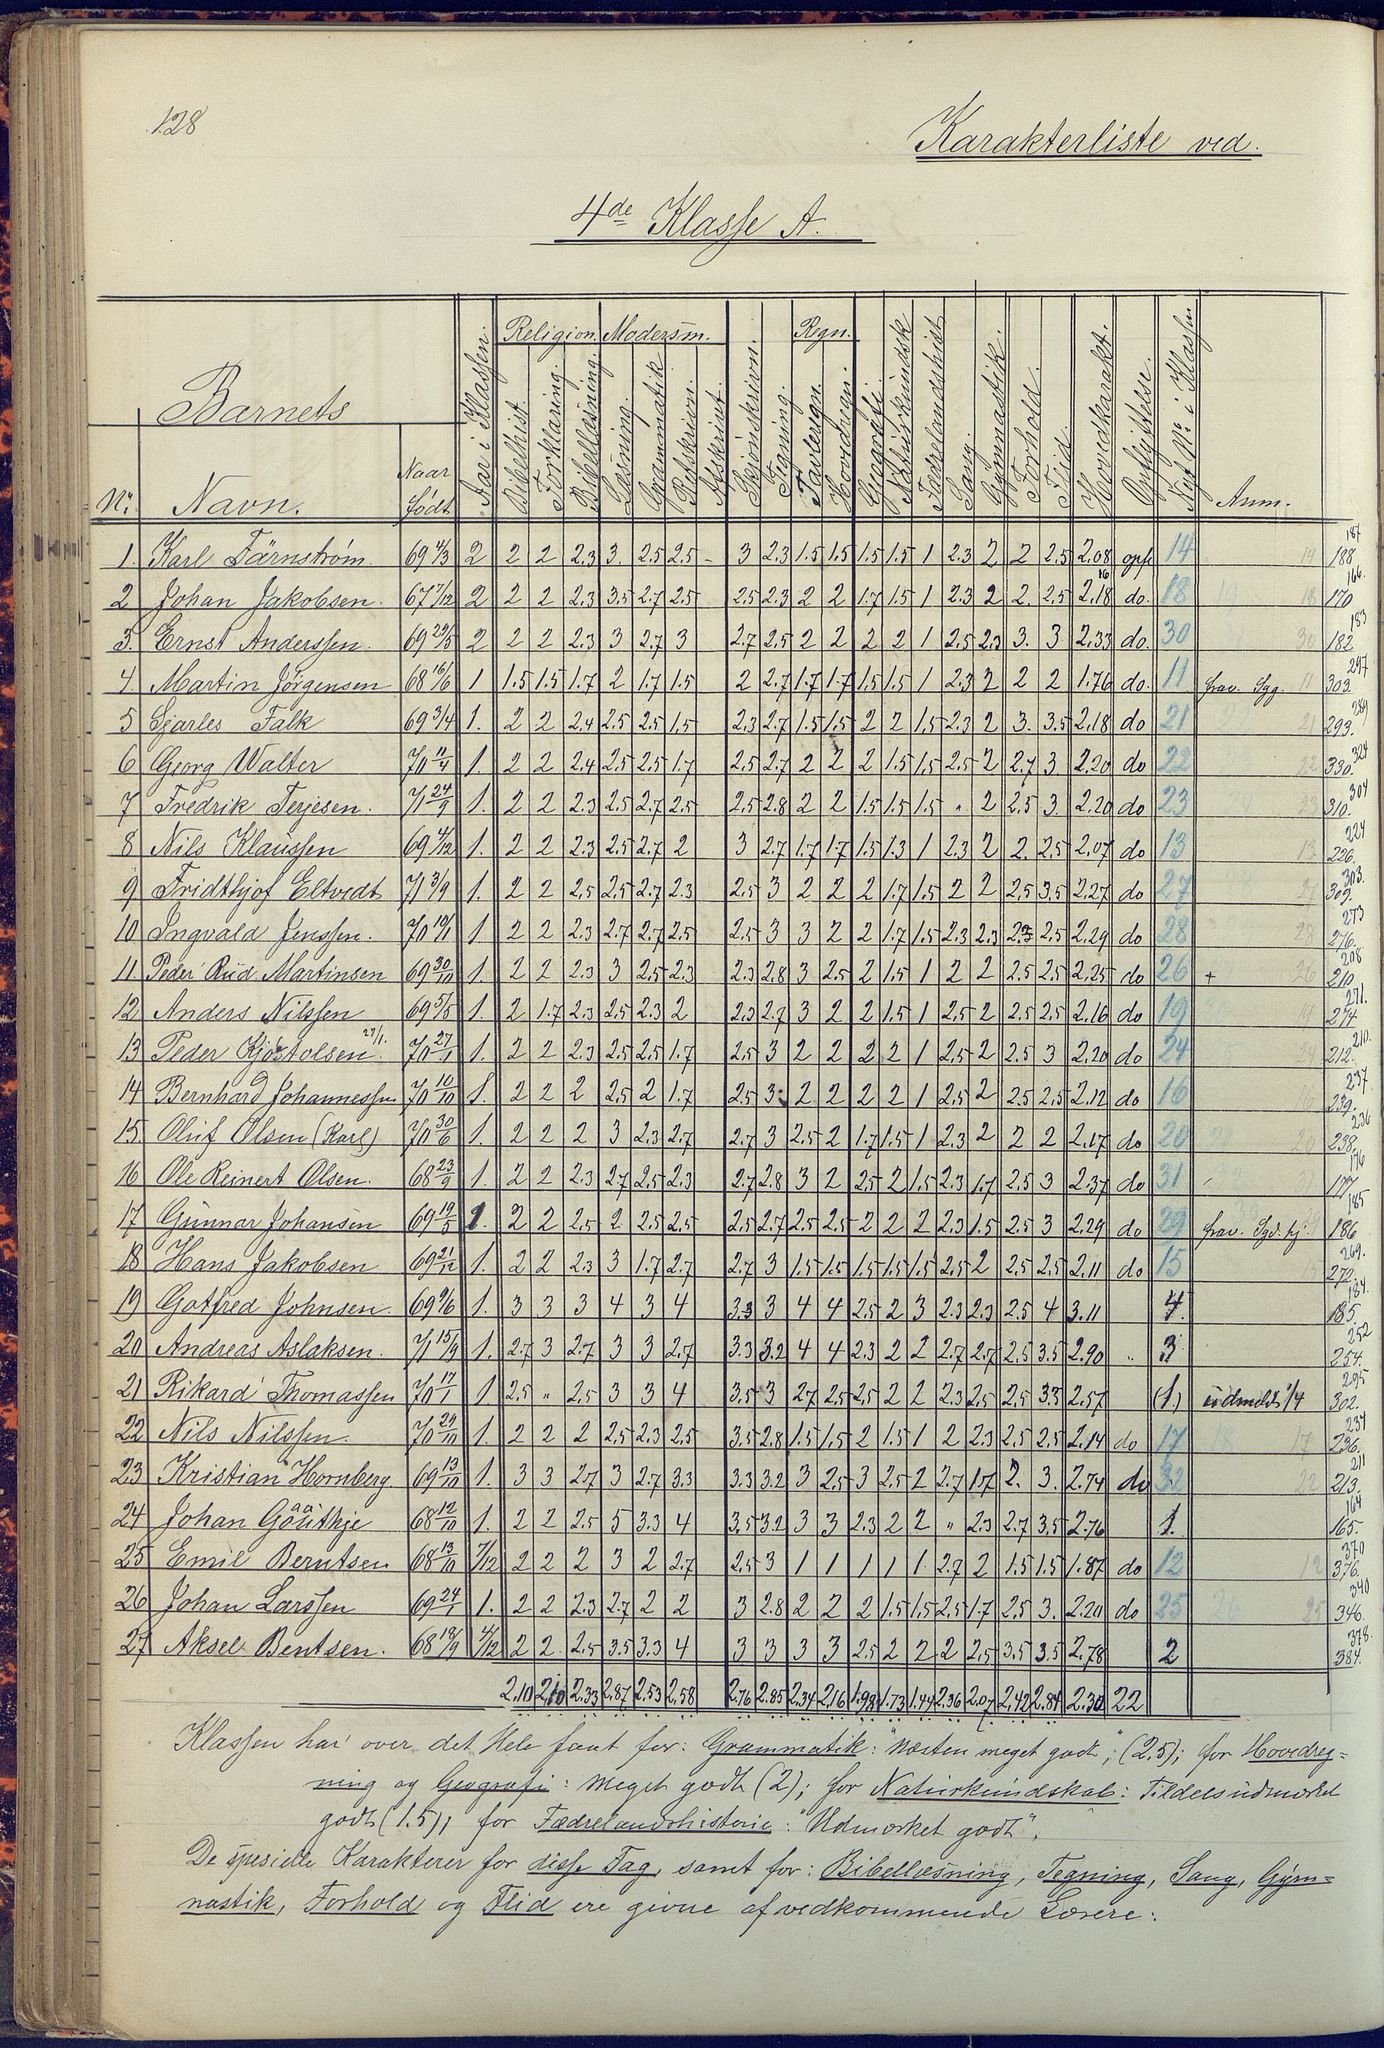 128
Karakterliste ved.
4de Klasse A.
Barnets
Religion. Modersm. Regn.
No. Navn. Naar født Aar i Klassen. Bibelhist. Forklaring. Bibellæsning. Læsning. Grammatik Retskrivn. Afskrivt. Skjønskrivn. Tegning. Tavleregn. Hovdregn. Geografi. Naturkundsk Fædrelandshist Sang. Gymnastik. Forhold. Flid. Hovdkarakt. Opflyttelse. Nyt No. i Klassen Anm.
1. Karl Färnström 69 4/3 2 2 2 2.3 3. 2.5 2.5 - 3 2.3 1.5 1.5 1.5 1.5 1 2.3 2 2 2.5 2.08 opf 14 14 187 188
2 Johan Jakobsen. 67 17/12 2 2 2 2.3 3.5 2.7 2.5 2.5 2.3 2 2 1.7 1.5 1 2.3 2 2. 2.5 2.18 16 do. 18 19 18 166 170
3. Ernst Anderssen. 69 29/5 2 2 2 2.3 3 2.7 3 2.7 2.5 2 2 2 2 1 2.5 2.3 3. 3 2.33 do. 30 30 183 182
4 Martin Jørgensen 68 16/6 1 1.5 1.5 1.7 2 1.7 1.5 2 2.7 1.7 1.7 1.5 1.5 1 2.3 2 2 2 1.76 do. 11 frav. Sgg. 11 297 303.
5 Sjarles Falk 69 3/4 1. 2 2 2.4 2.5 2.5 1.5 2.3 2.7 1.5 1.5 2 2 1.5 2.3 2 3. 3.5 2.18 do 21 21 289 293.
6 Georg Walter 70 11/4 1. 2 2 2.4 2.5 2.5 1.7 2.5 2.7 2 2 2 1.5 1.5 2.5 2 2.7 3 2.20 do 22 22 324 330.
7 Fredrik Terjesen. 71 24/9 1. 2 2 2.3 2.5 2.7 2.5 2.5 2.8 2 2 1.5 1.5 1.5 " 2 2.5 3. 2.20 do 23 23 304 310.
8 Nils Klaussen 69 4/12 1. 2 2 2.3 2.5 2.7 2 3 2.7 1.7 1.7 1.5 1.3 1 2.3 2 2. 2.5 2.07 do 13 13 224 226.
9 Fridthjof Eltvedt 71 3/9 1. 2 2 2.5 2.5 2.7 2.3 2.5 3 2 2 2 1.7 1.5 2 2 2.5 3.5 2.27 do 27 27 303. 309.
10 Ingvald Jenssen. 70 10/1 1 2 2 2.3 2.7 2.7 2.5 2.5 3 3 2 2 1.7 1.5 2.3 2.3 2.3 2.5 2.29 do 28 28 273 276.
11 Peder Rud Martinsen 69 30/10 1. 2 2 2.3 3 2.5 2.3 2.3 2.8 3 2.5 2 1.5 1 2 2 2.5 2.5 2.25 do 26 + 26 208 210.
12 Anders Nilssen 69 5/5 1. 2 1.7 2.3 2.5 2.3 2 2.3 2.7 3 2 2 1.5 1 2.5 2 2.5 2.5 2.16 do 19 19 271. 274.
13 Peder Kjøstolsen. 27/1. 70 27/1 1. 2 2 2.3 2.5 2.5 1.7 2.5 3 2 2 2 2 1 2.5 2 2.5 3 2.20 do 24 24 210. 212.
14 Bernhard Johannessen 70 10/10 1. 2 2 2 2.5 2 1.7 2.5 3 2 2 2 2 1 2.5 2 2.5 2.5 2.12 do 16 16 237. 239.
15 Oluf Olsen (Karl) 70 30/6 1. 2 2 2 3 2.3 2.7 2.7 3 2.5 2 1.7 1.5 1 2.3 2 2 2 2.17 do 20 20 236 238.
16 Ole Reinert Olsen. 68 23/9 1. 2 2 2.3 2.7 2.5 2.3 2.7 2.8 3 2 2.5 2 1.5 2.3 1.7 2.5 3 2.37 do 31 176 177
17 Gunnar Johansen 69 19/5 1. 2 2 2.5 2 2.5 2.5 2.5 2.7 2.5 2.5 2 2 2 2.3 1.5 2.5 3 2.29 do 29 frav. 185 186
18 Hans Jakobsen 69 21/12 1. 2 2 2.3 3 1.7 2.7 2.7 3 1.5 1.5 1.5 1.5 1.5 2.5 2 2.5 2.5 2.11 do 15 15 269. 272.
19 Gotfred Johnsen. 69 9/6 1. 3 3 3 4 3 4 3.3 3 4 4 2.5 2 3 2.3 2.3 2.5 4 3.11 4. 184. 185.
20 Andreas Aslaksen. 71 15/9 1. 2.7 3 2.7 3 3 2.7 3.3 3.2 4 4 2.3 2 2 2.7 2.7 2.5 3.5 2.90 " 3 252 254.
21 Rikard Thomassen 70 17/1 1 2.5 " 2.5 3 3 4 3.5 3 2.7 2.5 2.5 2 2 2.3 2.5 2.5 3.3 2.57 (1.) udmeldt 1/4 295 302.
22 Nils Nilssen. 70 29/10 1. 2 2 2 2.5 2.3 2.5 3.5 2.8 1.5 1.5 2 1.5 1 2 2.3 2.5 2.5 2.14 do 17 18 17 234 236.
23 Kristian Hornberg. 69 13/10 1. 3 3 2.7 3 2.7 3.3 3.3 3.2 3 2.5 3 2.5 2 2.7 1.7 2. 3. 2.74 do 32 22 211 213.
24 Johan Göuthje 68 12/10 1. 2 2 2.5 5 3.3 4 3.5 3.2 3 3 2.3 2 2 " 2.3 2.7 3.5 2.76 1. 164 165.
25 Emil Berntsen 68 13/10 7/12 2 2 2 3 2 2.7 2.5 3 1 1 1 1 1 2.7 2 1.5 1.5 1.87 do 12 12 370 376.
26 Johan Larssen 69 24/1 1. 2 2 2.3 2.7 2 2 3 2.8 2 2 2 1.5 1.5 2.5 1.7 2.5 3. 2.20 do 25 26 25 340 346.
27 Aksel Bentsen. 68 18/9 4/12 2 2. 2.5 3.5 3.3 4 3 3 3 3 2.5 2 2 2 2.5 3.5 3.5 2.78 2 378. 384.
2.10 2.10 2.33 2.87 2.53 2.58 2.76 2.85 2.34 2.16 1.98 1.73 1.44 2.36 2.07 2.42 2.84 2.30 22
Klassen har over det Hele faat for: Grammatik: "næsten meget godt"; (2.5); for Hovedreg=
ning og Geografi: meget godt (2); for Naturkundskab: Tildels udmærket
godt (1.5); for Fædrelandshistorie: "Udmærket godt".
De spesielle Karakterer for disse Fag, samt for: Bibellæsning, Tegning, Sang, Gym=
nastik, Forhold og Flid ere givne af vedkommende Lærere.